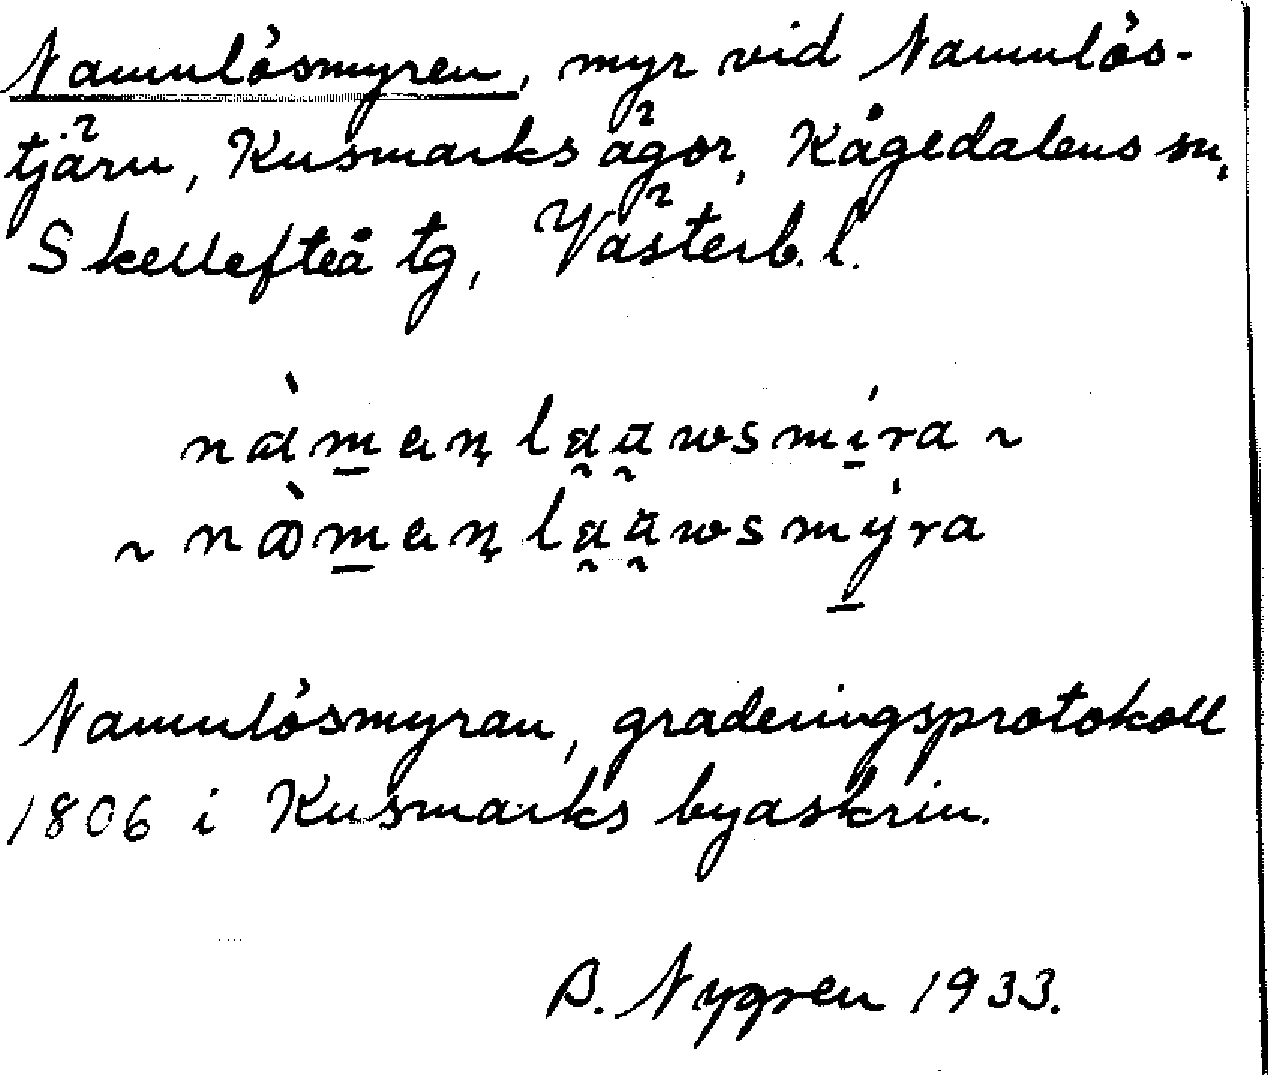 Namnlösmyren, myr vid Namnlös-
tjärn, Kusmarks ägor, Kågedalens sn,
Skellefteå tg, Västerb. l.
nàm̲ən̥la̰a̰wsmí̲ra ~
~ nòm̲ən̥la̰a̰wsmý̲ra
Namnlösmyran, graderingsprotokoll
1806 i Kusmarks byaskrin.
B. Nygren 1933.